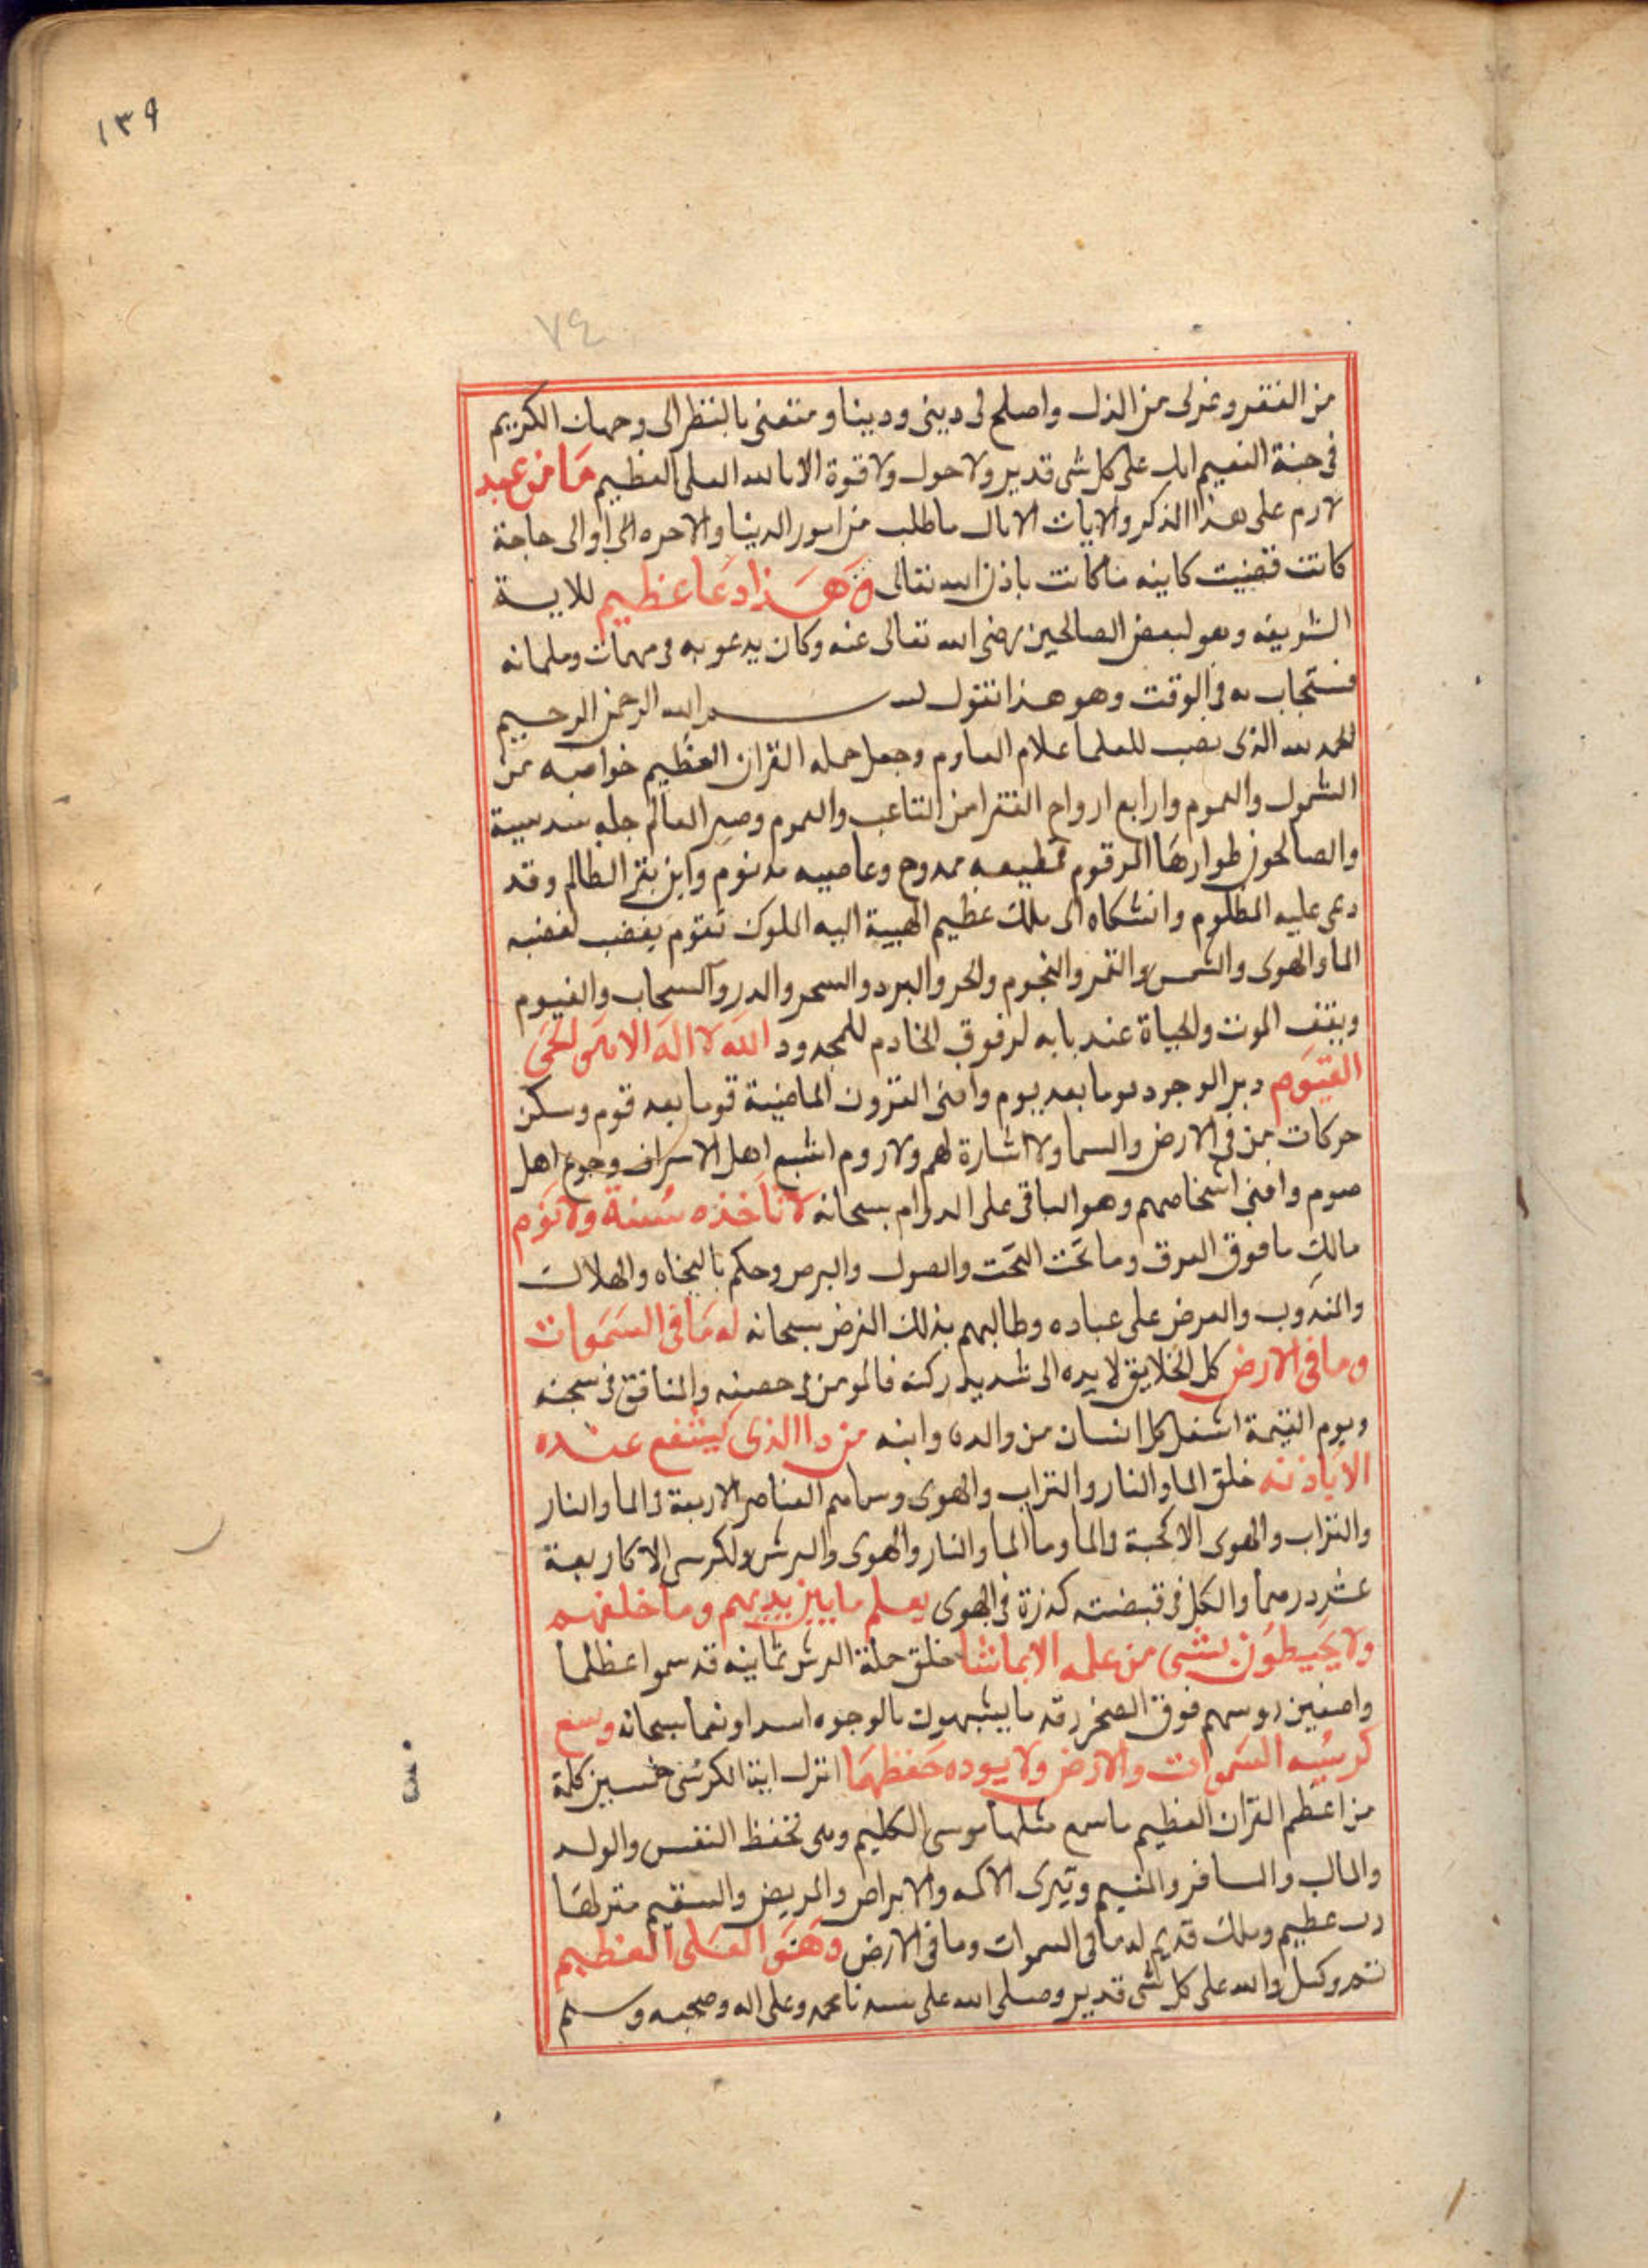 ١٣٩
٧٤
من الفقر وعزلى من الذل واصلح لى دينى ودينا ومتعنى بالنظر الى وجهك الكريم
فى جنة النعيم انك على كل شى قدير ولا حول ولا قوة الا بالله العلى العظيم مَا من عبد
لازم على هذا الذكر والايات الا نال ما طلب من امور الدنيا والاخره الى او الى حاجة
كانت قضيت كاينه ما كانت باذن الله تعالى وَهَذا دعَا عظيم للاية
الشريفه وهو لبعض الصالحين رضى الله تعالى عنه وكان يدعو به فى مهمات وملماته
فستجاب له فى الوقت وهو هذا تقول بسم الله الرحمن الرحيم
الحمد لله الذى نصب للعلما اعلام العلوم وجعل حمله القران العظيم خواصه من
الشمول والعموم وارابع ارواح الفقرا من التاعب والهموم وصير العالم جله
والصالحون طوارهَا المرقوم فمطيعه ممدوح وعاصيه مذنوم واين يقر الظالم وقد
دعى عليه المظلوم وانشكاه الى ملك عظيم الهيبة اليه الملوك تقوم يغضب لغضبه
الما والهوى والشمس والقمر والنجوم والحر والبرد والسحر والدر والسحاب والغيوم
ويقف الموت والحياة عند بابه لوقوف الخادم للمجدود الله لا اله الا هو الحى
القيوم دبر الوجود يوما بعد يوم وافنى القرون الماضية قوما بعد قوم وسكن
حركات من فى الارض والسما ولا اشارة لهم ولا روم اشبع اهل الاسراف وجوع اهل
صوم وافنى اشخاصهم وهو الباقى على الدوام سبحانه لا تاخذه سُنة ولا نوم
مالك ما فوق العرق وما تحَت التحَت والصول والبرص وحكم بالنجاه والهلاك
والمندوب والعرض على عباده وطالبهم بذلك الغرض سبحانه له مَا فى السَمَوات
وما فى الارض كل الخلايق لا يده الى شديد ركنه فالمومن فى حصنه والمنافق فى سجنه
ويوم القيمة اشغل كل انسان من والده وابنه من ذا الذى يشفع عنده
الا باذنه خلق الما والنار والتراب والهوى وسماهم العناصر الاربعة فالما والنار
والتراب والهوى الا كحبة فالما وما الما والنار والهوى والعرش والكرسى الا كاربعة
عشر درهما والكل فى قبضته كذرة فى الهوى يعلم ما بين يديهم وما خلفهم
ولا يحَيطوُن بشى من علمه الا بما شا خلق حملة العرش ثمانيه قد سموا عظلما
واصفين روسهم فوق الصخر قد ما يشبهون بالوجوه اسد او نعما سبحانه وسع
كرسيُه السَموات والارض ولا يوده حَفظهمَا انزل اية الكرسى خمسين كلمة
من اعظم القران العظيم ما سمع مثلها موسى الكليم وهى تحفظ النفس والولد
والمال والمسافر والمقيم وتبرى الاكمه والابراص والمريض والسقيم منزلهَا
رب عظيم وملك قديم له ما فى السموات وما فى الارض وَهوَ العَلى العظيم
تم وكمل والله على كل شى قدير وصلى الله على سيدنا محمد وعلى اله وصحبه وسلم